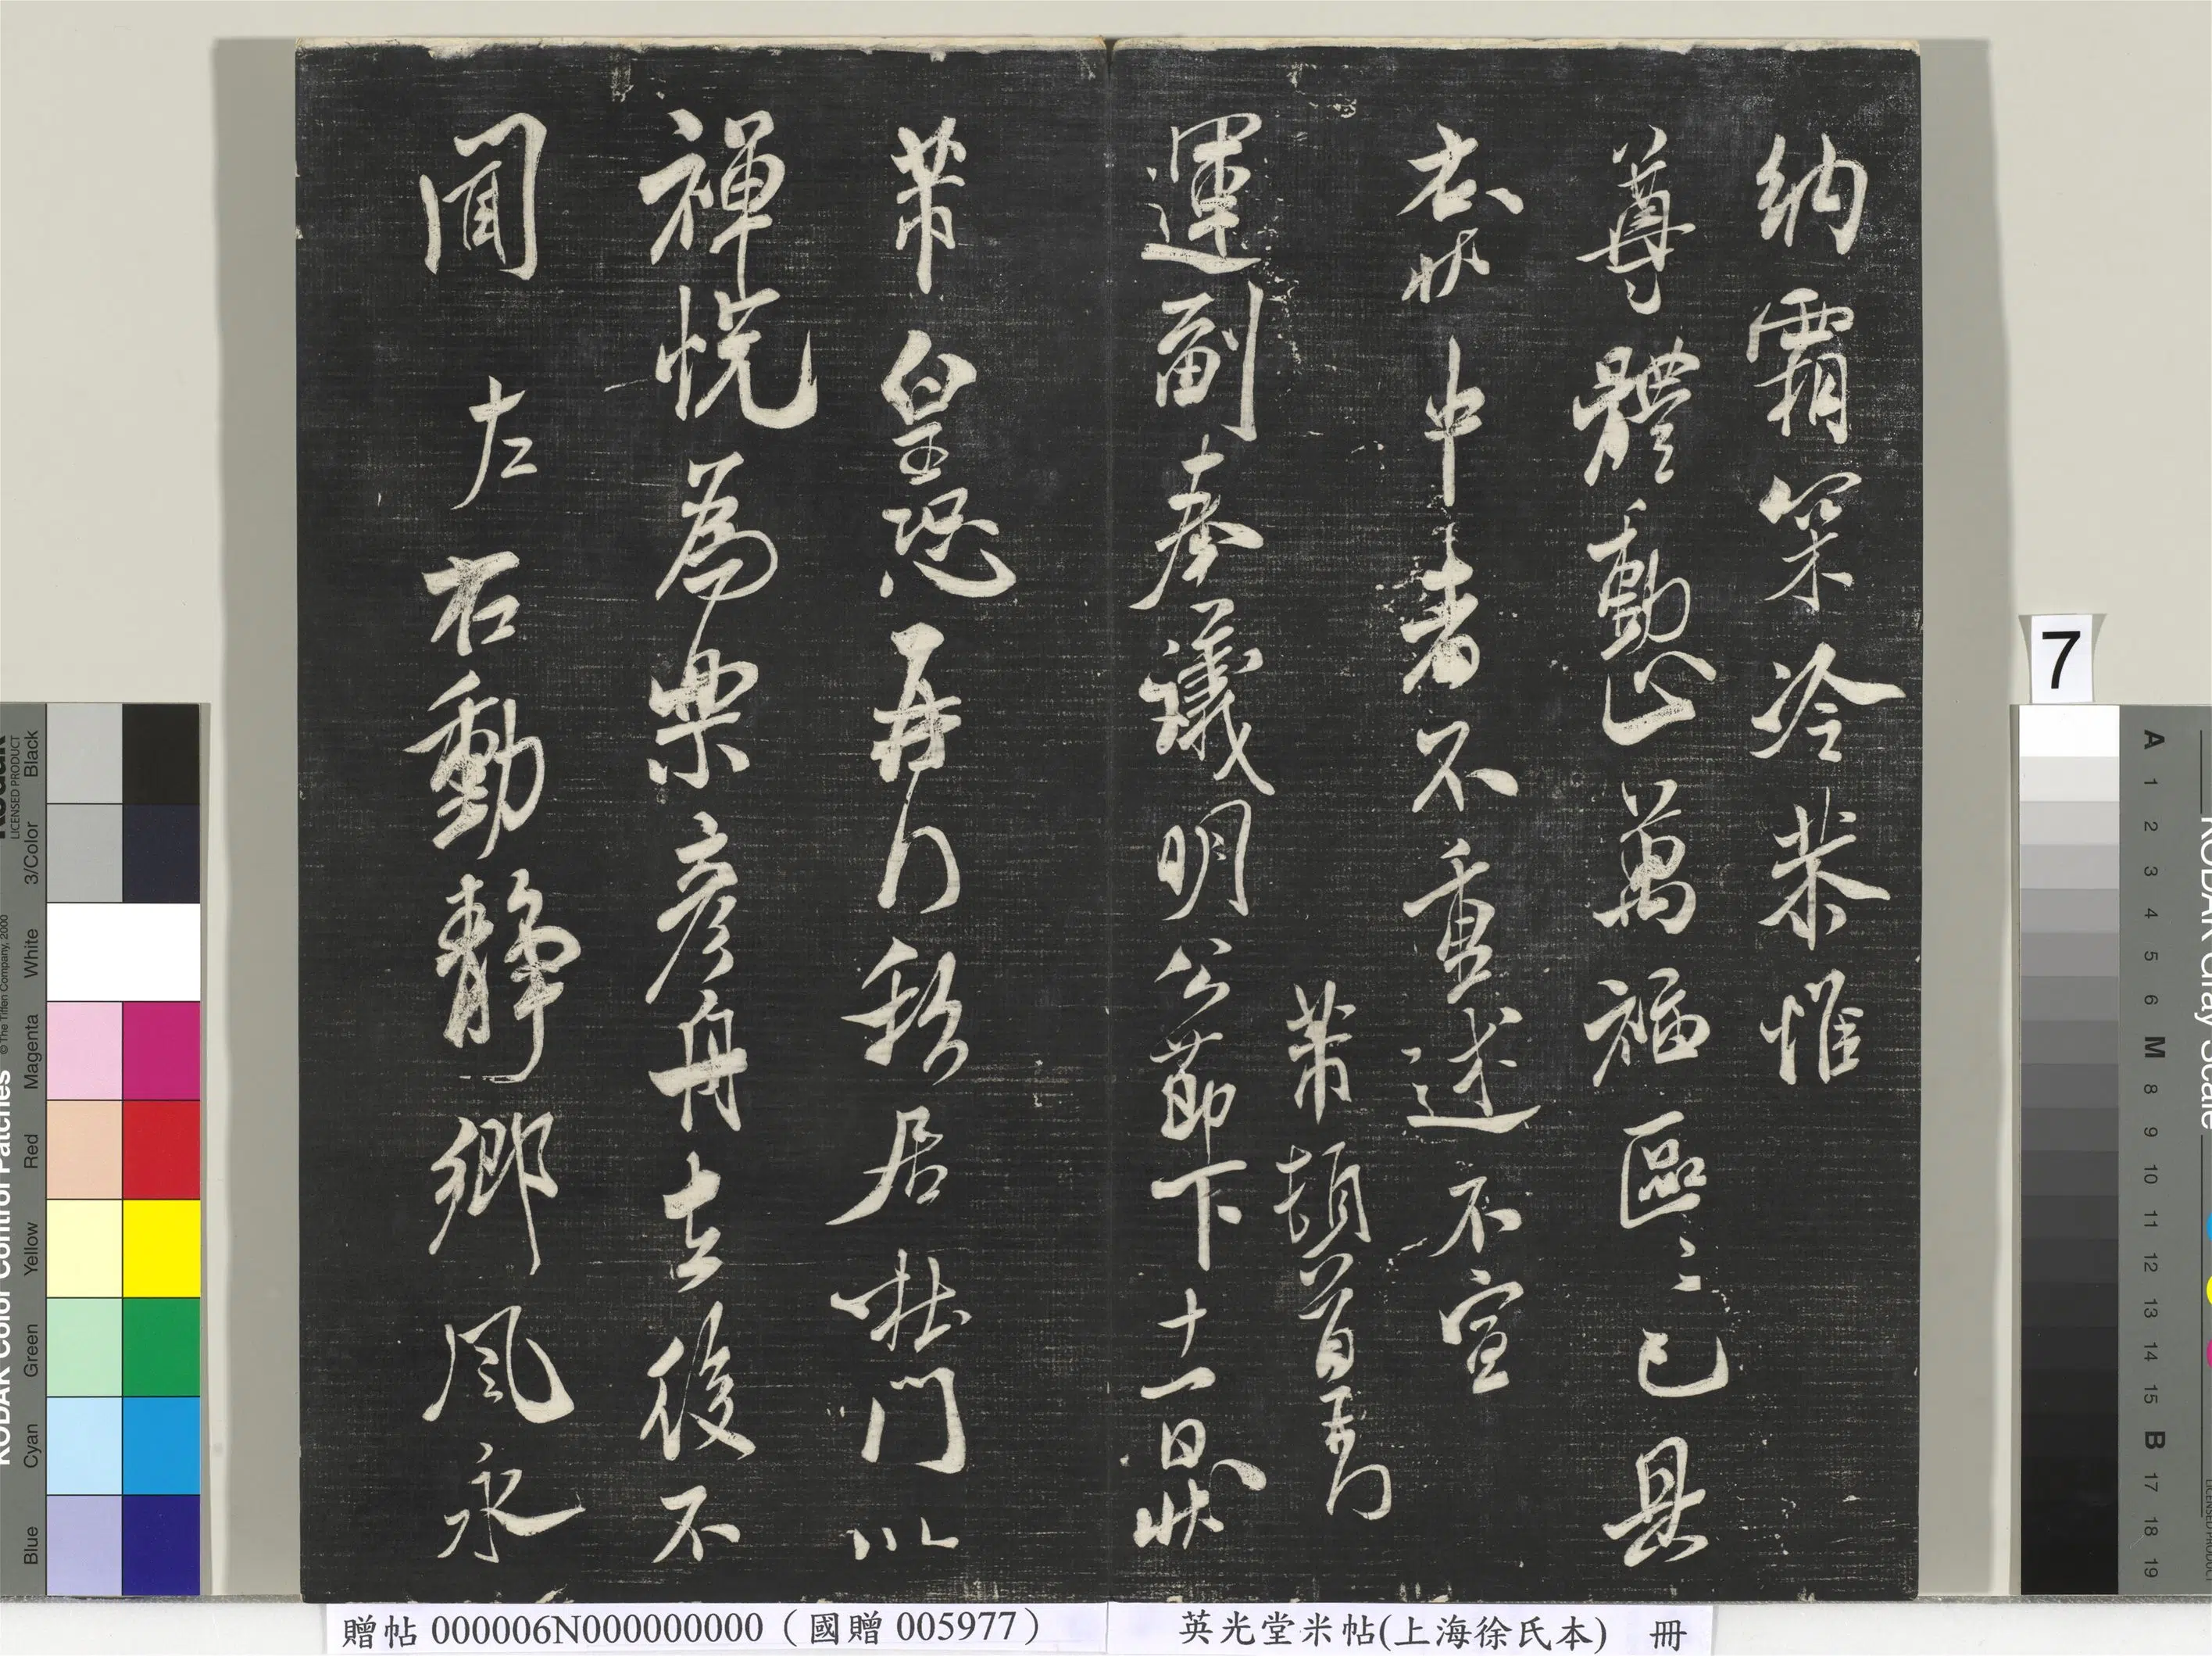 納霜冷恭惟
尊體動止萬福區區已具
右狀中者不重述不宣
芾頓首再拜
運副奉議明公節下十一日狀
芾皇恐再拜私居杜門以
禪悅為樂彥舟去後不
聞左右動靜鄉風永
7
贈帖 000006N000000000(國贈 005977)
英光堂米帖(上海徐氏本) 冊
KODAK Color Control Patches
LICENSED PRODUCT
© The Tiffen Company, 2000
Blue Cyan Green Yellow Red Magenta White 3/Color Black
KODAK Gray Scale
A 1 2 3 4 5 6 M 8 9 10 11 12 13 14 15 B 17 18 19